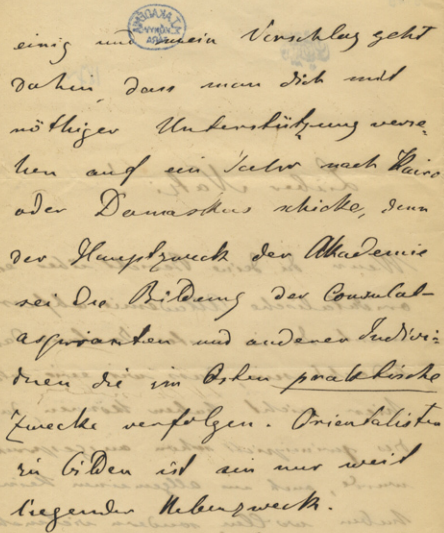 einig und mein Vorschlag geht
dahin, dass man dich mit
nöthiger Unterstützung verse-
hen auf ein Jahr nach Kairo
oder Damaskus schicke, denn
der Hauptzweck der Akademie
sei die Bildung der Consulat-
aspiranten und anderer Indivi-
duen die im Osten praktische
Zwecke verfolgen. Orientalisten
zu bilden ist ein nur weit
liegender Nebenzweck.